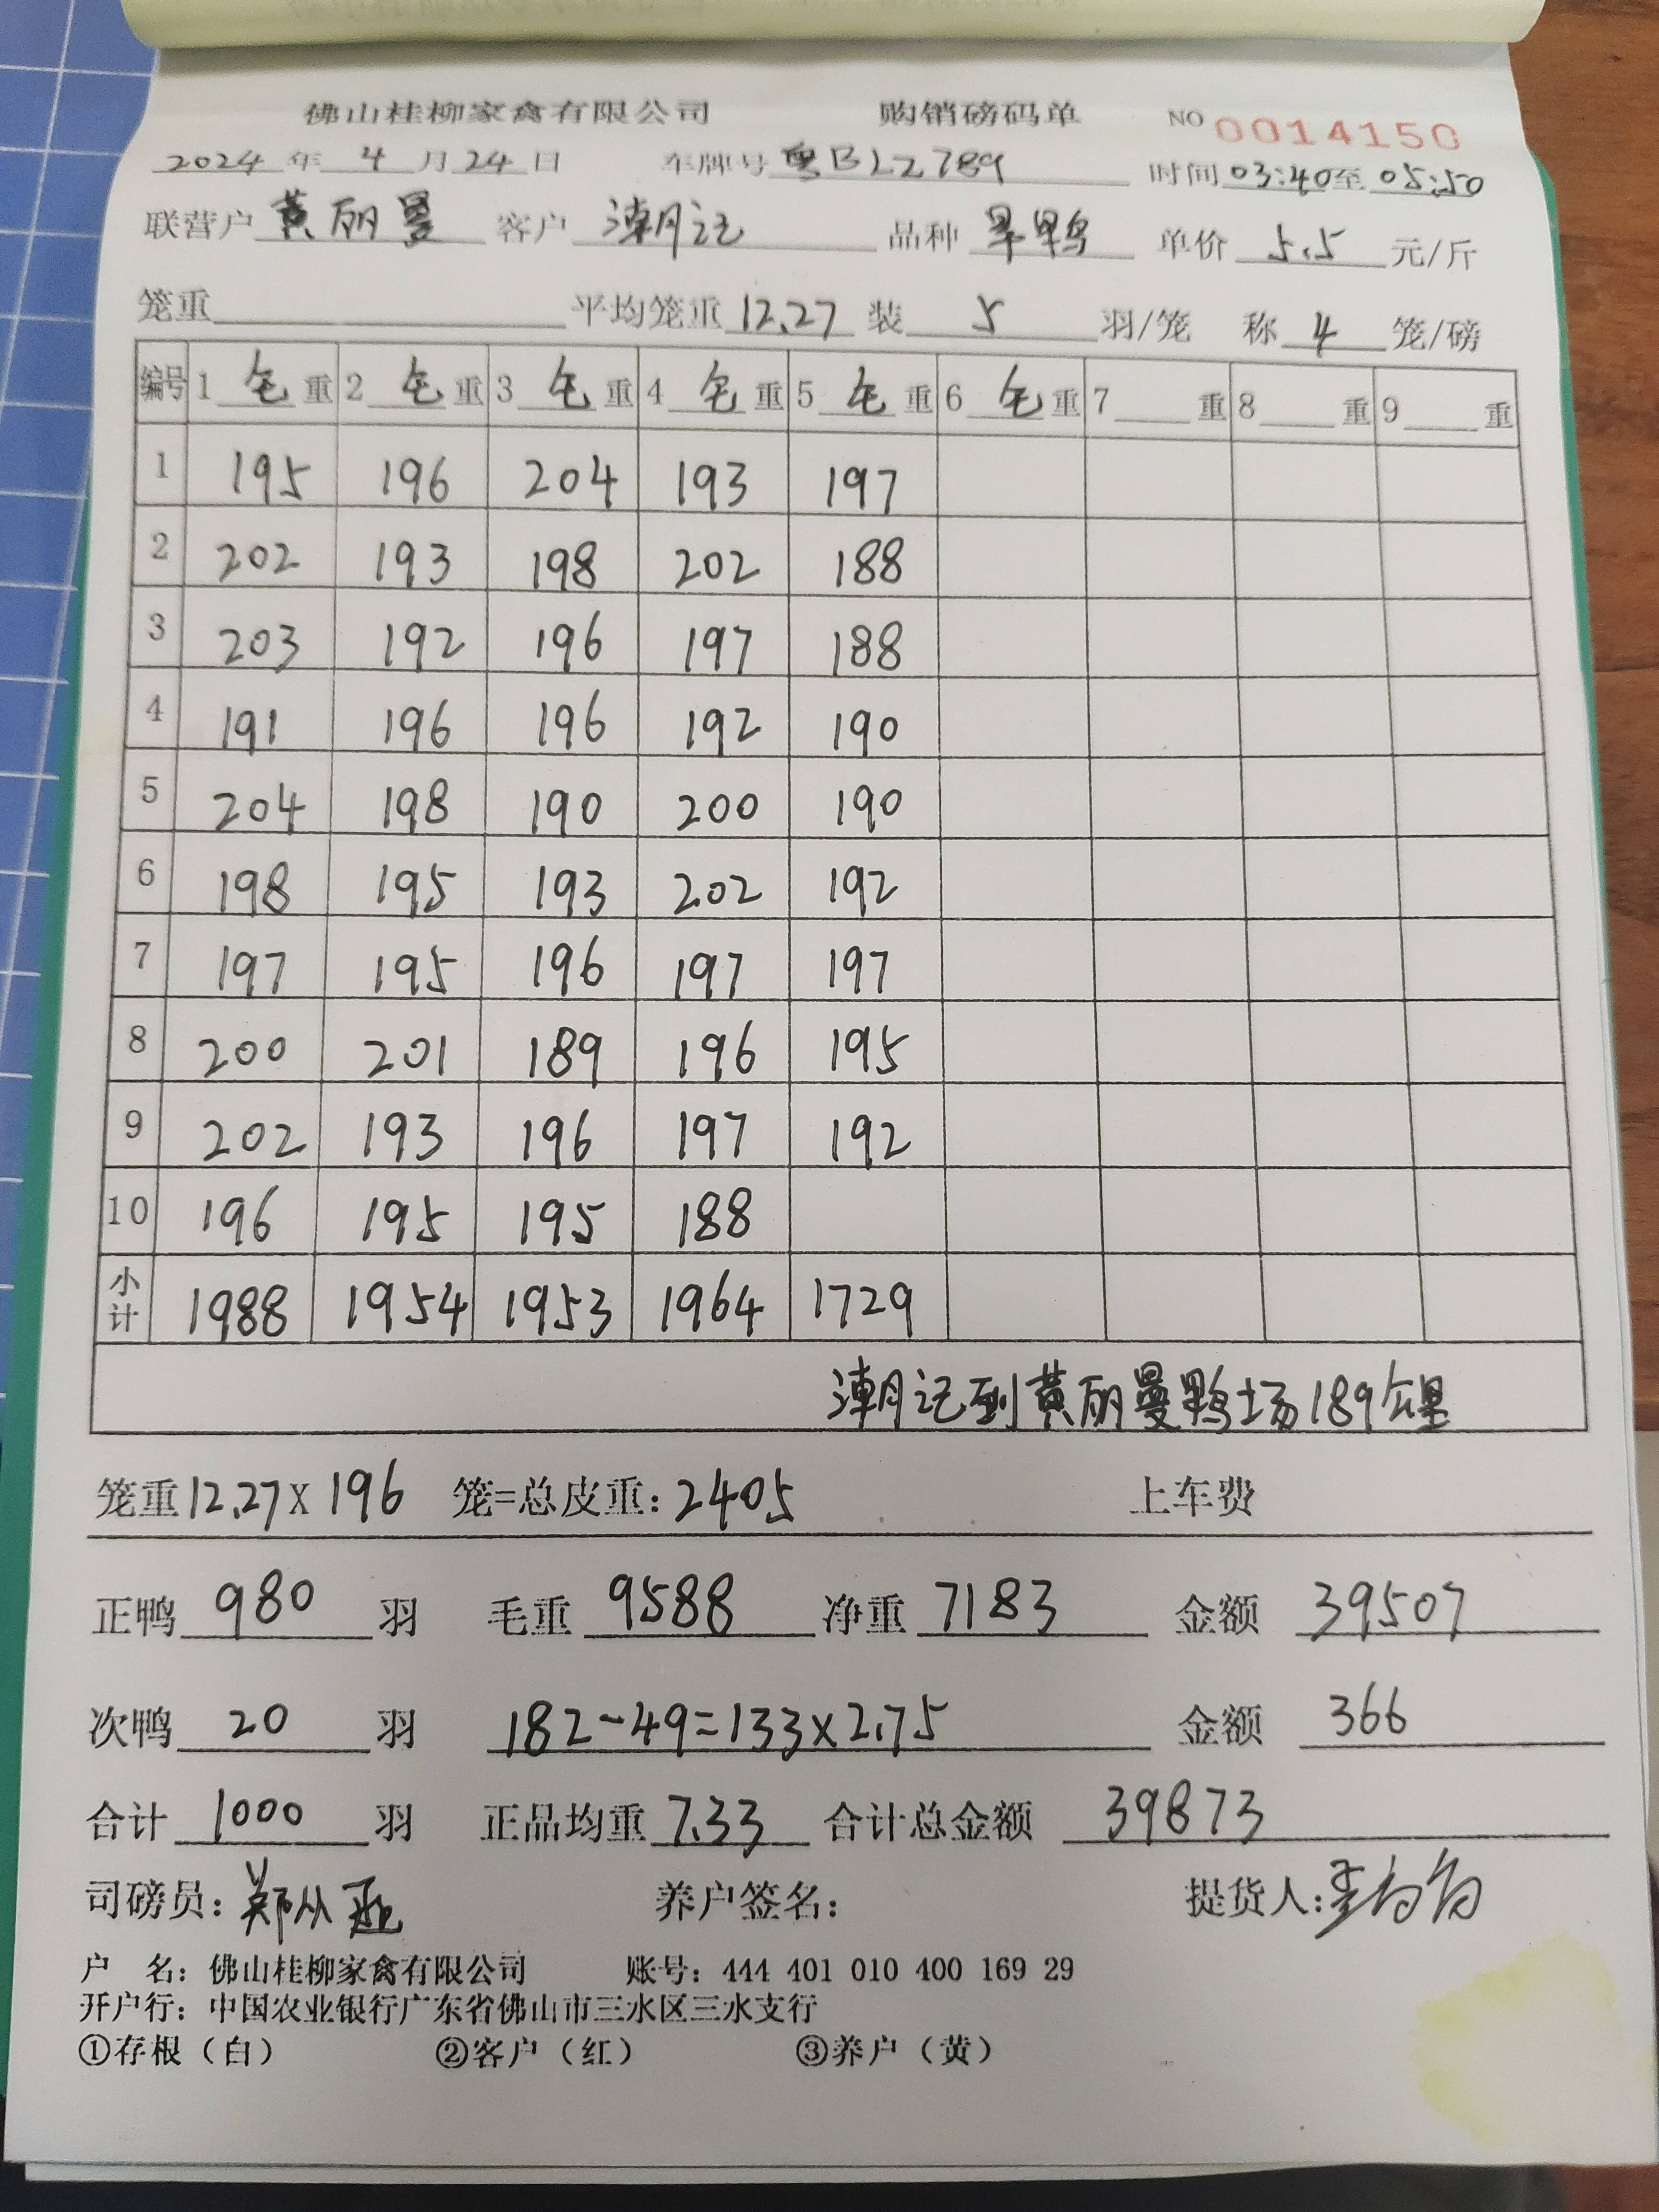 佛山桂柳家禽有限公司 购销磅码单 NO 0014150
2024 年 4 月 24 日 车牌号 粤BLZ789 时间 03:40 至 05:50
联营户 黄丽曼 客户 潮记 品种 旱鸭 单价 5.5 元/斤
笼重 平均笼重 12.27 装 5 羽/笼 称 4 笼/磅
编号 1 毛 重 2 毛 重 3 毛 重 4 毛 重 5 毛 重 6 毛 重 7 重 8 重 9 重
1 195 196 204 193 197
2 202 193 198 202 188
3 203 192 196 197 188
4 191 196 196 192 190
5 204 198 190 200 190
6 198 195 193 202 192
7 197 195 196 197 197
8 200 201 189 196 195
9 202 193 196 197 192
10 196 195 195 188
小计 1988 1954 1953 1964 1729
潮记到黄丽曼鸭场189公里
笼重 12.27 X 196 笼=总皮重: 2405 上车费
正鸭 980 羽 毛重 9588 净重 7183 金额 39507
次鸭 20 羽 182-49=133×2.75 金额 366
合计 1000 羽 正品均重 7.33 合计总金额 39873
司磅员: 郑从 养户签名: 提货人:
户 名: 佛山桂柳家禽有限公司 账号: 444 401 010 400 169 29
开户行: 中国农业银行广东省佛山市三水区三水支行
①存根（白） ②客户（红） ③养户（黄）